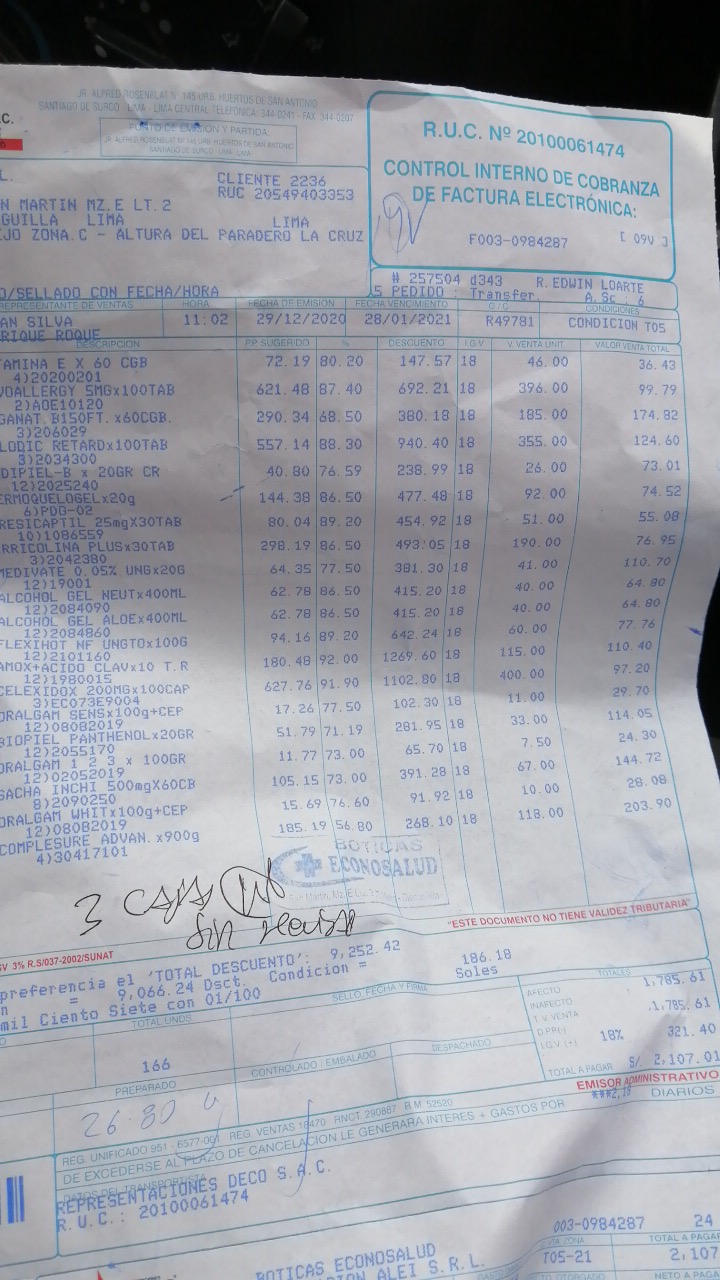 JR. ALFRED ROSENBLAT Nº 145 URB. HUERTOS DE SAN ANTONIO
SANTIAGO DE SURCO - LIMA - LIMA CENTRAL TELEFONICA: 344-0241 - FAX 344-0207
C.
PUNTO DE EMISIÓN Y PARTIDA:
JR. ALFRED ROSENBLAT Nº 145 URB. HUERTOS DE SAN ANTONIO
SANTIAGO DE SURCO - LIMA - LIMA
R.U.C. Nº 20100061474
CONTROL INTERNO DE COBRANZA
DE FACTURA ELECTRÓNICA:
F003-0984287 [ 09V ]
L. CLIENTE 2236
RUC 20549403353
N MARTIN MZ.E LT.2
GUILLA LIMA LIMA
JO ZONA.C - ALTURA DEL PARADERO LA CRUZ
# 257504 d343 R. EDWIN LOARTE
5 PEDIDO : Transfer. A.Sc : 6
O/SELLADO CON FECHA/HORA
REPRESENTANTE DE VENTAS HORA FECHA DE EMISION FECHA VENCIMIENTO O/C CONDICIONES
AN SILVA 11:02 29/12/2020 28/01/2021 R49781 CONDICION T05
RIQUE ROQUE
DESCRIPCION P.P SUGERIDO % DESCUENTO I.G.V V. VENTA UNIT. VALOR VENTA TOTAL
TAMINA E X 60 CGB 72.19 80.20 147.57 18 46.00 36.43
4)20200201
VOALLERGY 5MGx100TAB 621.48 87.40 692.21 18 396.00 99.79
2)AOE10120
GANAT.B150FT.x60CGB. 290.34 68.50 380.18 18 185.00 174.82
3)206029
LODIC RETARDx100TAB 557.14 88.30 940.40 18 355.00 124.60
3)2034300
DIPIEL-B x 20GR CR 40.80 76.59 238.99 18 26.00 73.01
12)2025240
ERMOQUELOGELx20g 144.38 86.50 477.48 18 92.00 74.52
6)PDG-02
RESICAPTIL 25mgX30TAB 80.04 89.20 454.92 18 51.00 55.08
10)1086559
RRICOLINA PLUSx30TAB 298.19 86.50 493.05 18 190.00 76.95
3)2042380
MEDIVATE 0.05% UNGx20G 64.35 77.50 381.30 18 41.00 110.70
12)19001
ALCOHOL GEL NEUTx400ML 62.78 86.50 415.20 18 40.00 64.80
12)2084090
ALCOHOL GEL ALOEx400ML 62.78 86.50 415.20 18 40.00 64.80
12)2084860
FLEXIHOT NF UNGTOx100G 94.16 89.20 642.24 18 60.00 77.76
12)2101160
AMOX+ACIDO CLAVx10 T.R 180.48 92.00 1269.60 18 115.00 110.40
12)1980015
CELEXIDOX 200MGx100CAP 627.76 91.90 1102.80 18 400.00 97.20
3)EC073E9004
ORALGAM SENSx100g+CEP 17.26 77.50 102.30 18 11.00 29.70
12)08082019
BIOPIEL PANTHENOLx20GR 51.79 71.19 281.95 18 33.00 114.05
12)2055170
ORALGAM 1 2 3 x 100GR 11.77 73.00 65.70 18 7.50 24.30
12)02052019
SACHA INCHI 500mgX60CB 105.15 73.00 391.28 18 67.00 144.72
8)2090250
ORALGAM WHITx100g+CEP 15.69 76.60 91.92 18 10.00 28.08
12)08082019
COMPLESURE ADVAN.x900g 185.19 56.80 268.10 18 118.00 203.90
4)30417101
BOTICAS
ECONOSALUD
3 CAJAS
sin revisar
"ESTE DOCUMENTO NO TIENE VALIDEZ TRIBUTARIA"
GV 3% R.S/037-2002/SUNAT
preferencia el 'TOTAL DESCUENTO': 9,252.42
n = 9,066.24 Dsct. Condicion = 186.18
mil Ciento Siete con 01/100 Soles
TOTAL UNDS. SELLO, FECHA Y FIRMA TOTALES
166
AFECTO 1,785.61
INAFECTO
T.V. VENTA 1,785.61
D.PP(-)
I.G.V. (+) 18% 321.40
TOTAL A PAGAR S/. 2,107.01
PREPARADO CONTROLADO / EMBALADO DESPACHADO
EMISOR ADMINISTRATIVO
DIARIOS
REG. UNIFICADO 951 - 6577-001 REG. VENTAS 18470 RNCT. 290887 B.M 52520
DE EXCEDERSE AL PLAZO DE CANCELACIÓN LE GENERARÁ INTERES + GASTOS POR
DATOS DEL TRANSPORTISTA
REPRESENTACIONES DECO S.A.C.
R.U.C.: 20100061474
003-0984287 24
ZONA TOTAL A PAGAR
BOTICAS ECONOSALUD T05-21 2,107
ION ALEI S.R.L.
NETO A PAGA